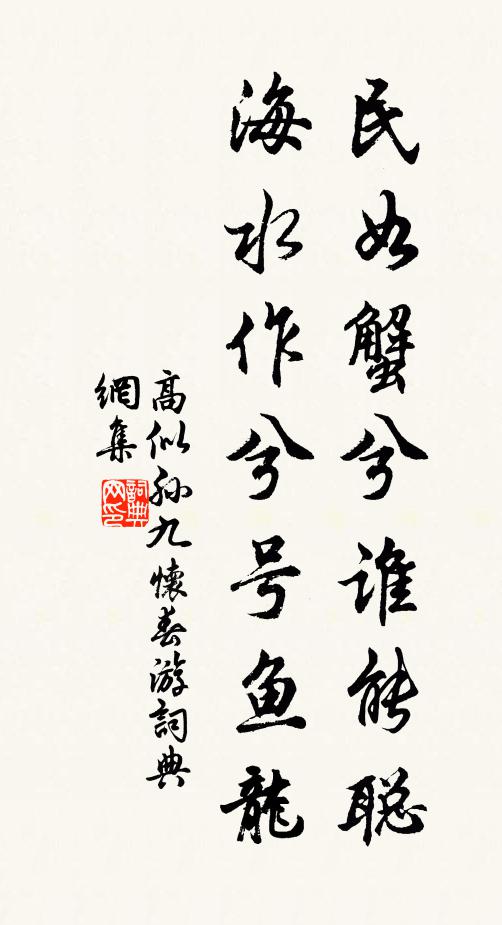 民如蟹兮谁能聪
海水作兮号鱼龍
高似孙九懷春游詞典
網集
詞典
网印